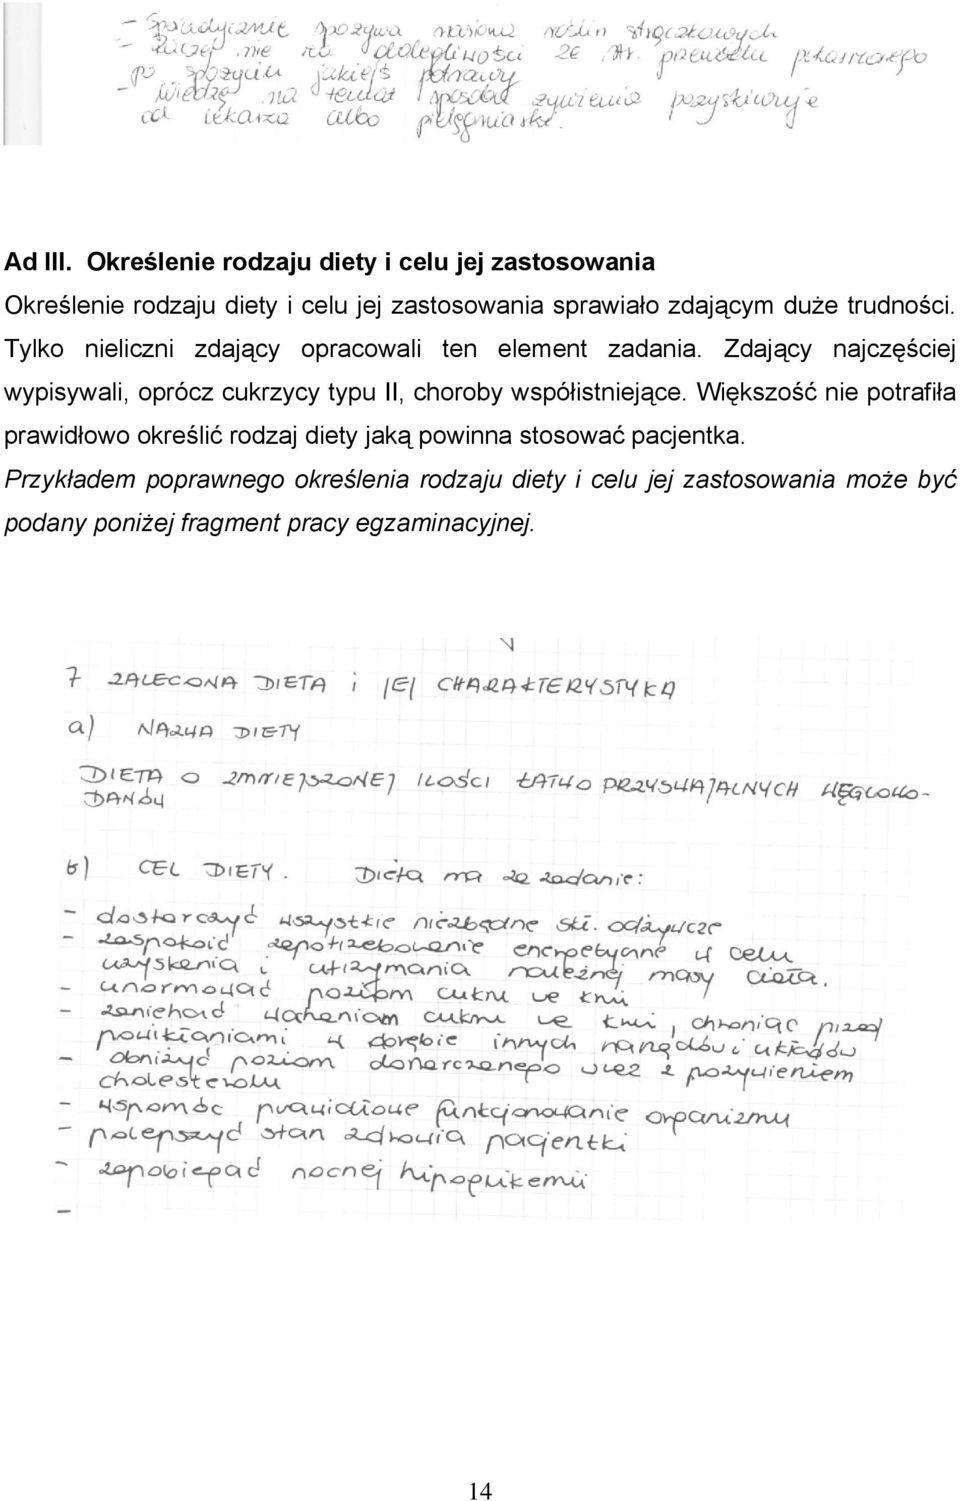 - Sporadycznie spożywa nasiona roślin strączkowych
- Raczej nie ma dolegliwości ze str. przewodu pokarmowego
po spożyciu jakiejś potrawy
- Wiedzę na temat sposobu żywienia pozyskiwuje
od lekarza albo pielęgniarski.
Ad III. Określenie rodzaju diety i celu jej zastosowania
Określenie rodzaju diety i celu jej zastosowania sprawiało zdającym duże trudności.
Tylko nieliczni zdający opracowali ten element zadania. Zdający najczęściej
wypisywali, oprócz cukrzycy typu II, choroby współistniejące. Większość nie potrafiła
prawidłowo określić rodzaj diety jaką powinna stosować pacjentka.
Przykładem poprawnego określenia rodzaju diety i celu jej zastosowania może być
podany poniżej fragment pracy egzaminacyjnej.
7 ZALECONA DIETA i JEJ CHARAKTERYSTYKA
a) NAZWA DIETY
DIETA O ZMNIEJSZONEJ ILOŚCI ŁATWO PRZYSWAJALNYCH WĘGLOWO-
DANÓW
b) CEL DIETY. Dieta ma za zadanie:
- dostarczyć wszystkie niezbędne skł. odżywcze
- zaspokoić zapotrzebowanie energetyczne w celu
uzyskania i utrzymania należnej masy ciała.
- unormować poziom cukru we krwi
- zaniechać wahaniom cukru we krwi, chroniąc przed
powikłaniami w obrębie innych narządów i układów
- obniżyć poziom dostarczanego wraz z pożywieniem
cholesterolu
- wspomóc prawidłowe funkcjonowanie organizmu
- polepszyć stan zdrowia pacjentki
- zapobiegać nocnej hipoglikemii
-
14